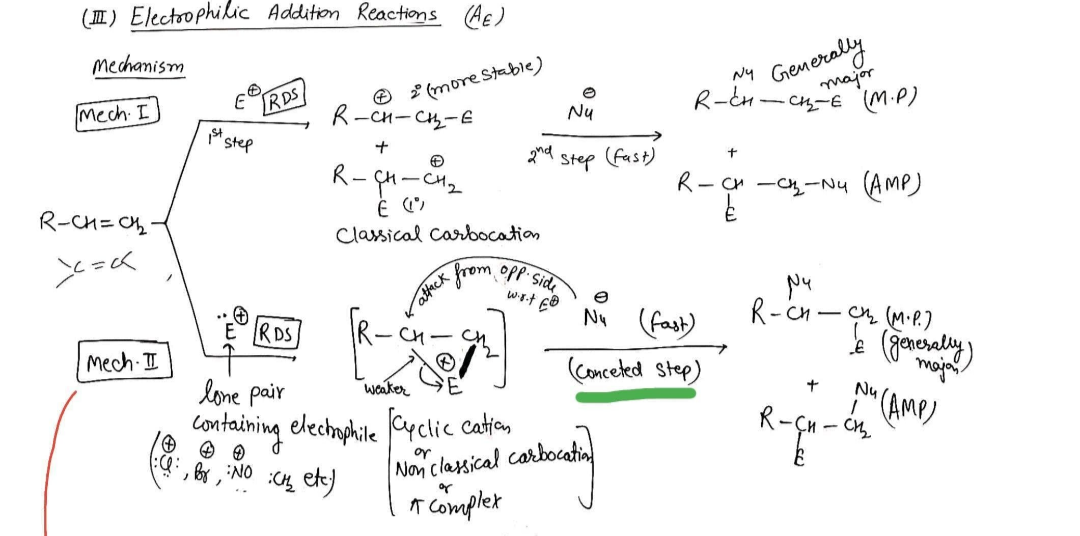 (III) Electrophilic Addition Reactions (AE)
Mechanism
Mech. I
E⊕ RDS
1st step
R-CH=CH2
⊕ 2° (more stable)
R-CH-CH2-E
+
R-CH-CH2⊕
E (1°)
Classical Carbocation
Nu⊖
2nd step (fast)
Nu Generally major
R-CH-CH2-E (M.P)
+
R-CH-CH2-Nu (AMP)
E
C=C
Mech. II
E⊕ RDS
lone pair
containing electrophile
(:Cl:⊕, Br⊕, :NO⊕ :CH2 etc)
attack from opp. side
w.r.t E⊕
[R-CH-CH2]
⊕
weaker
E
[Cyclic cation
or
Non classical carbocation
or
π complex]
Nu⊖ (fast)
(Conceted Step)
Nu
R-CH-CH2 (M.P.)
E (generally major)
+
Nu (AMP)
R-CH-CH2
E